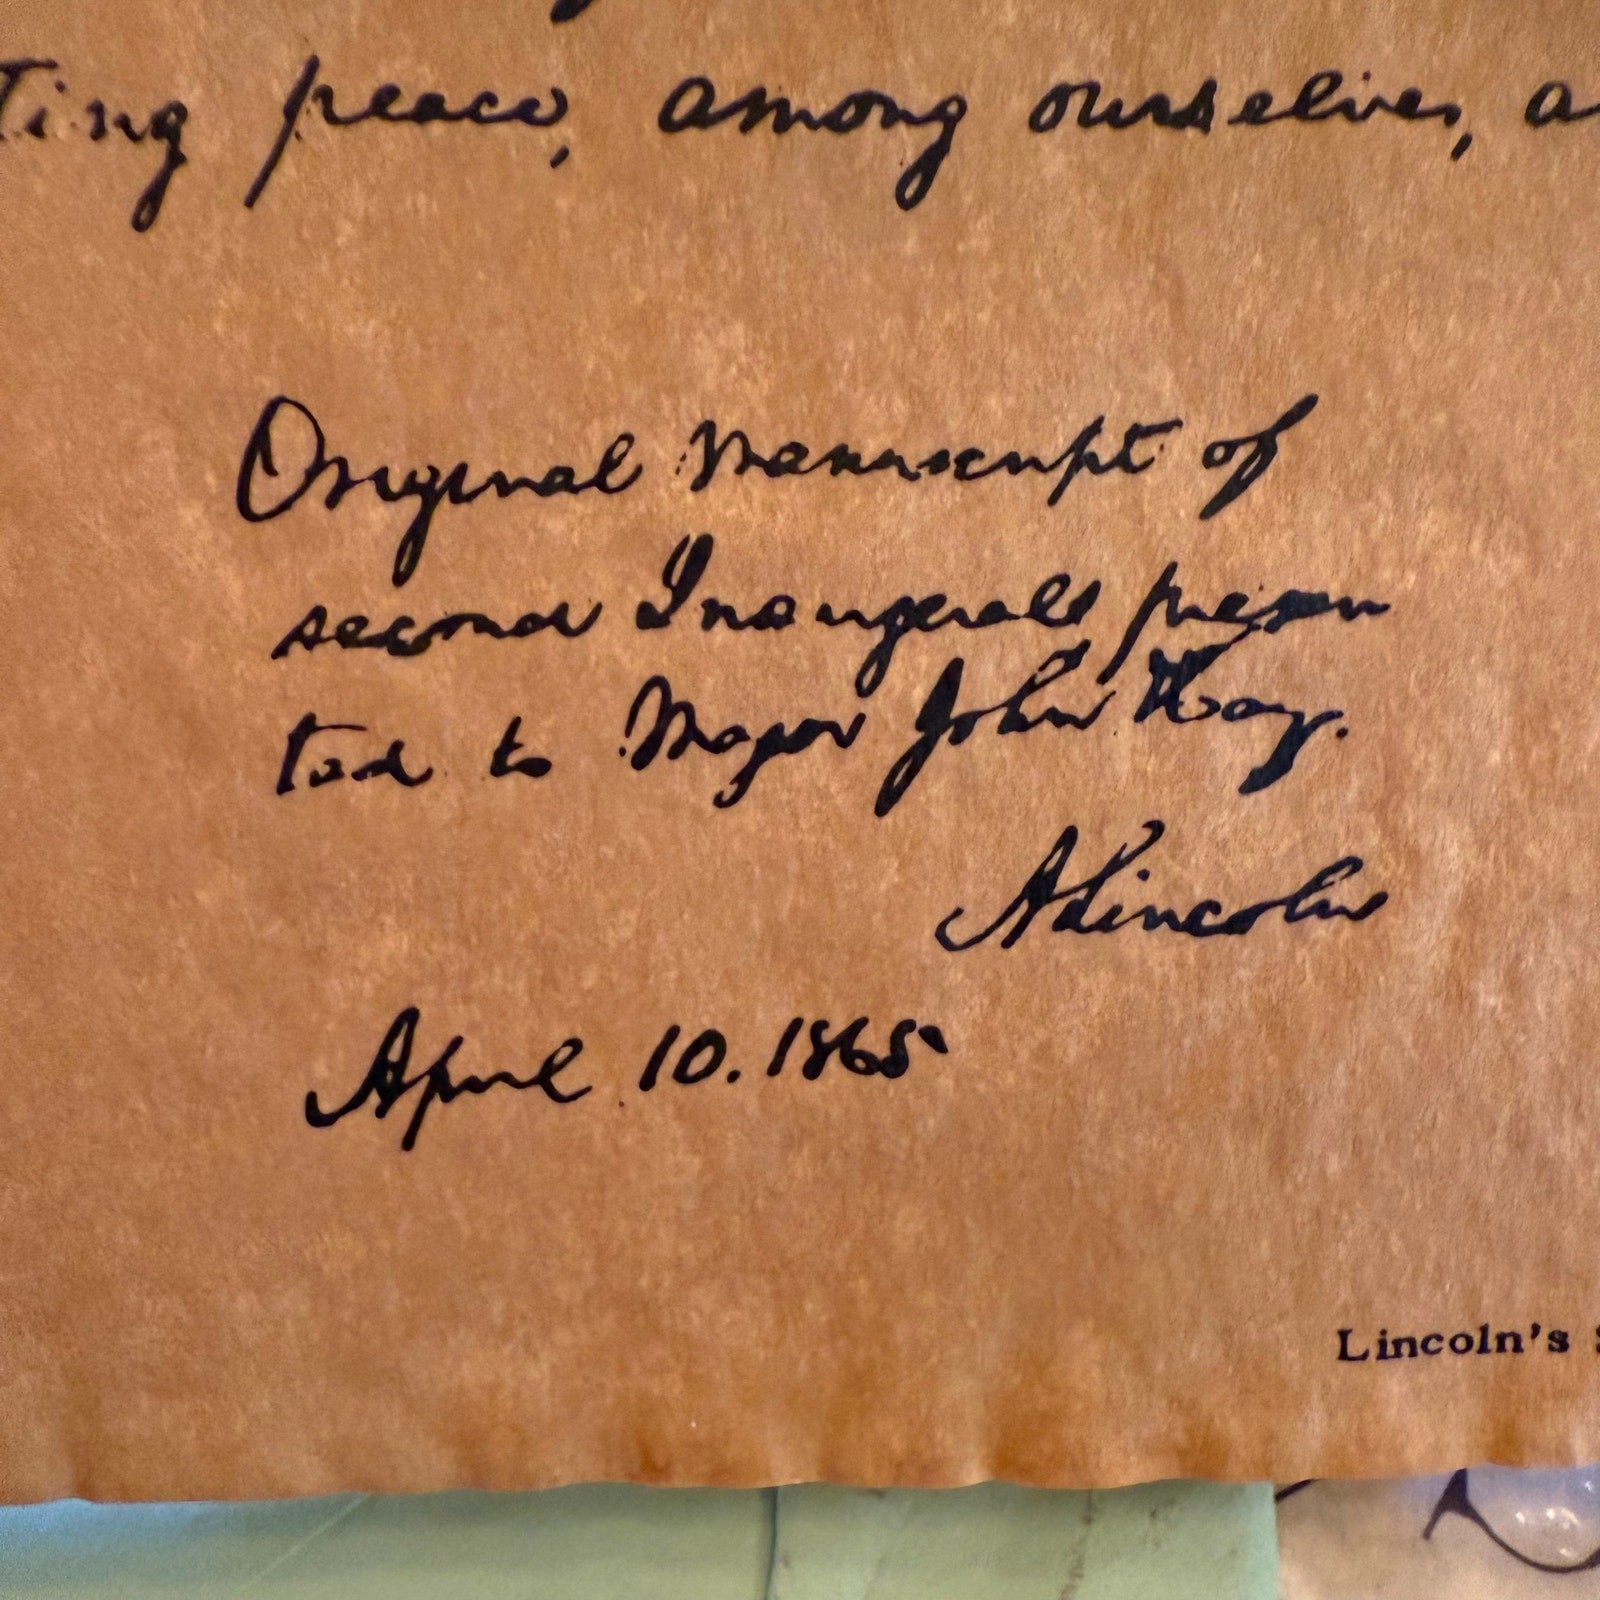 ting peace, among ourselves, a
Original manuscript of
second Inaugeral presen
ted to Major John Hay.
A Lincoln
April 10. 1865
Lincoln's